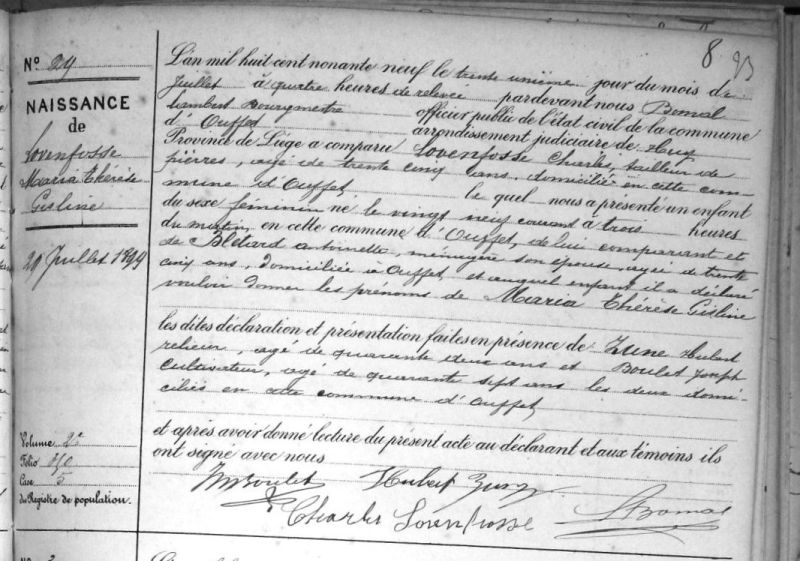 8
93
N° 29
NAISSANCE
de
Lovenfosse
Maria Thérèse
Gisline
29 Juillet 1899
Volume 2e
Folio
Case 5
du Registre de population.
L'an mil huit cent nonante neuf le trente unième jour du mois de
Juillet à quatre heures de relevée pardevant nous Bomal
Lambert Bourgmestre officier public de l'état civil de la commune
d'Ouffet arrondissement judiciaire de Huy
Province de Liége a comparu Lovenfosse Charles, tailleur de
pierres, agé de trente cinq ans, domicilié en cette com-
mune d'Ouffet le quel nous a présenté un enfant
du sexe féminin né le vingt neuf courant à trois heures
du matin, en cette commune d'Ouffet, de lui comparant et
de Bletard antoinette, ménagère son épouse, agée de trente
cinq ans, domiciliée à Ouffet, et auquel enfant il a déclaré
vouloir donner les prénoms de Maria Thérèse Gisline
les dites déclaration et présentation faites en présence de Zune Hubert
relieur, agé de quarante deux ans et Boulet Joseph
cultivateur, agé de quarante sept ans les deux domi-
ciliés en cette commune d'Ouffet
et après avoir donné lecture du présent acte au déclarant et aux témoins ils
ont signé avec nous
Boulet Hubert Zune
Charles Lovenfosse LBomal
N°